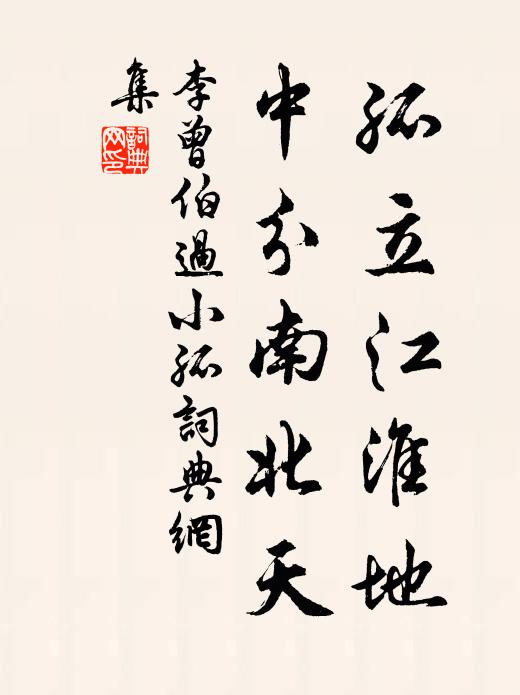 孤立江淮地
中分南北天
李曾伯過小孤詞典網
集
詞典網印